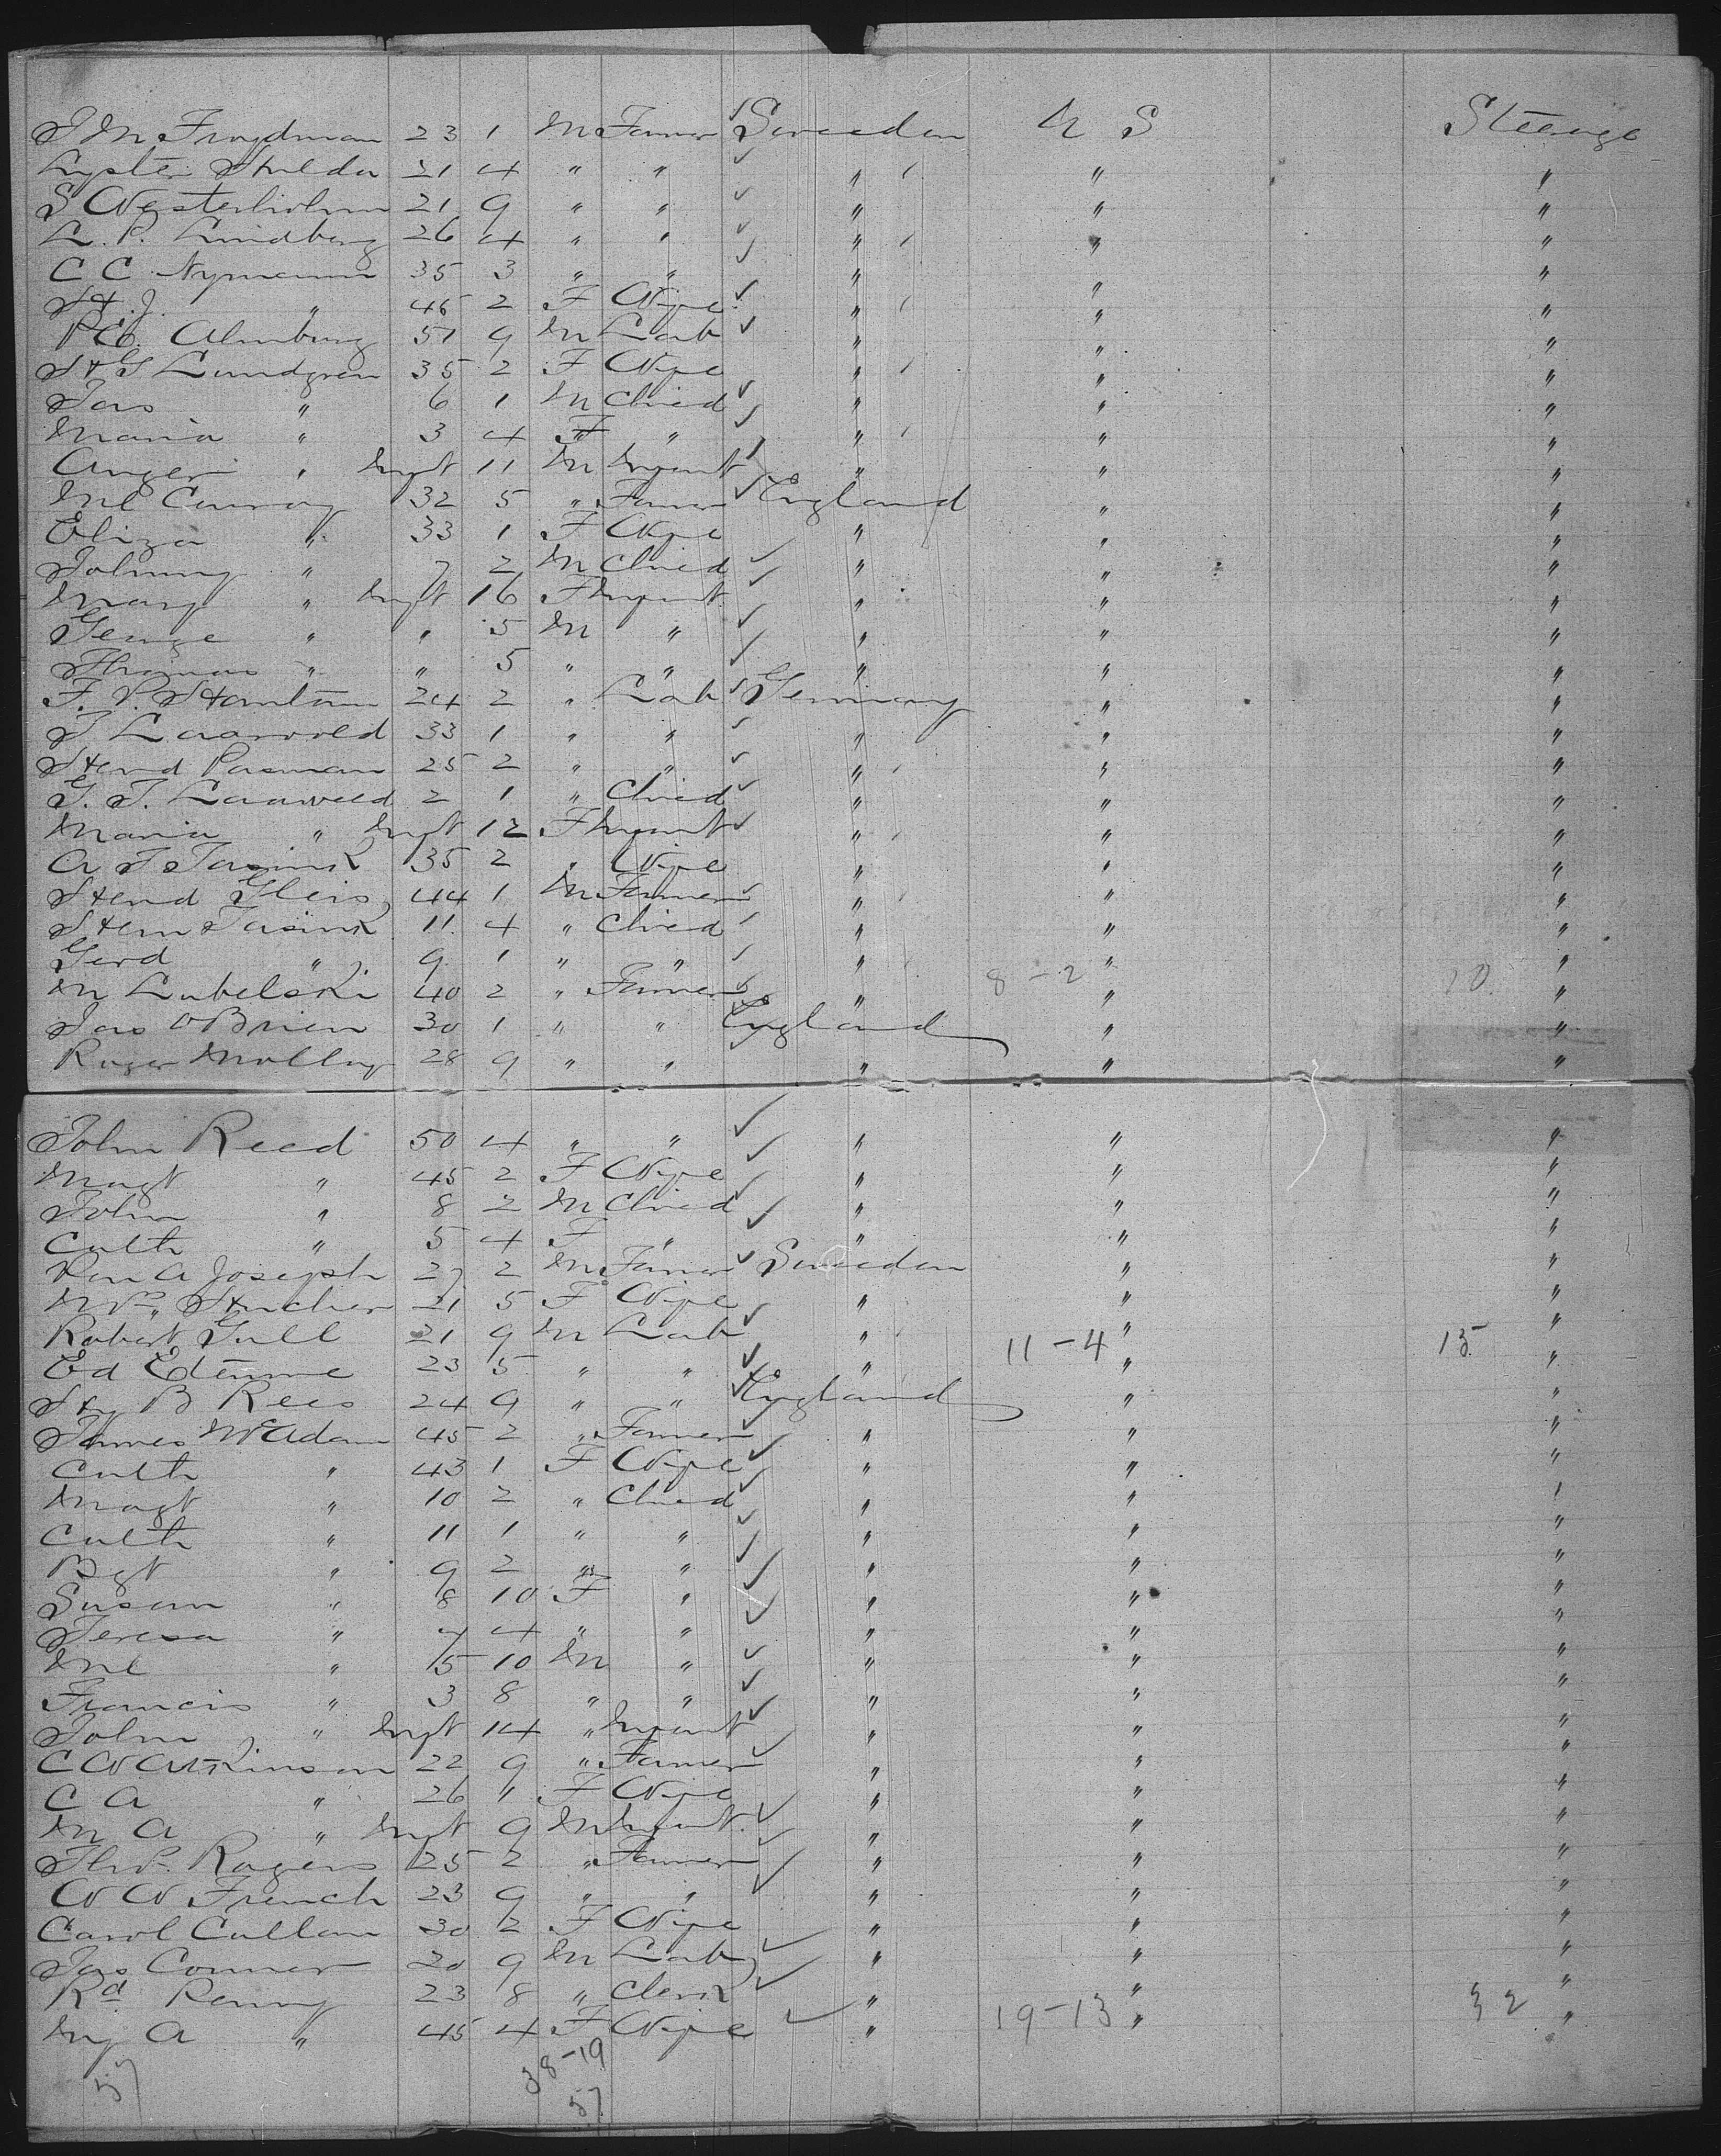 J M Froydman 23 1 M Farmer Sweeden U S Steerage
Hulda 21 4 " " " " "
S Westerholm 21 9 " " " " "
L. P. Lundberg 26 4 " " " " "
C C Nymann 35 3 " " " " "
H. J. " 46 2 F Wife " " "
P E. Almburg 51 9 M Lab " " "
H G Lundgren 35 2 F Wife " " "
Jas " 6 1 M Child " " "
Maria " 3 4 F " " " "
" Inft 11 M Infant " " "
Ml Conroy 32 5 " Farmer England " "
Eliza " 33 1 F Wife " " "
Johnny " 7 2 M Child " " "
Mary " Inft 16 F Infant " " "
George " " 5 M " " " "
Thomas " " 5 " " " " "
F. P. 24 2 " Lab Germany " "
J 33 1 " " " " "
Hend Pasman 25 2 " " " " "
G. J. 2 1 " Child " " "
Maria " Inft 12 F Infant " " "
A J Tasink 35 2 " Wife " " "
Hend Gleis 44 1 M Farmer " " "
Herm Tasink 11 4 " Child " " "
Gerd " 9 1 " " " 8-2 " 10 "
M Lubelski 40 2 " Farmer " " "
Jas O'Brien 30 1 " " England " "
Roger Molloy 28 9 " " " " "
John Reed 50 4 " " " " "
Magt " 45 2 F Wife " " "
John " 8 2 M Child " " "
Cath " 5 4 F " " " "
A Joseph 27 2 M Farmer Sweeden " "
Mrs 21 5 F Wife " " "
Robert Gull 21 9 M Lab " 11-4 " 15 "
Ed Etienne 23 5 " " " " "
Hy B Rees 24 9 " " England " "
James McAdam 45 2 " Farmer " " "
Cath " 43 1 F Wife " " "
Magt " 10 2 " Child " " "
Cath " 11 1 " " " " "
Bgt " 9 2 " " " " "
Susan " 8 10 F " " " "
Teresa " 7 4 " " " " "
Ml " 5 10 M " " " "
Francis " 3 8 " " " " "
John " Inft 14 " Infant " " "
C W Atkinson 22 9 " Farmer " " "
C A " 26 " F Wife " " "
M A " Inft 9 M Infant " " "
Thos Rogers 25 2 " Farmer " " "
W W French 23 9 " " " " "
Carol Cullan 30 2 F Wife " " "
Jas Conner 20 9 M Lab " " "
Rd Penny 23 8 " Clerk " " "
My A " 45 4 F Wife " 19-13 " 32 "
57 38-19
57